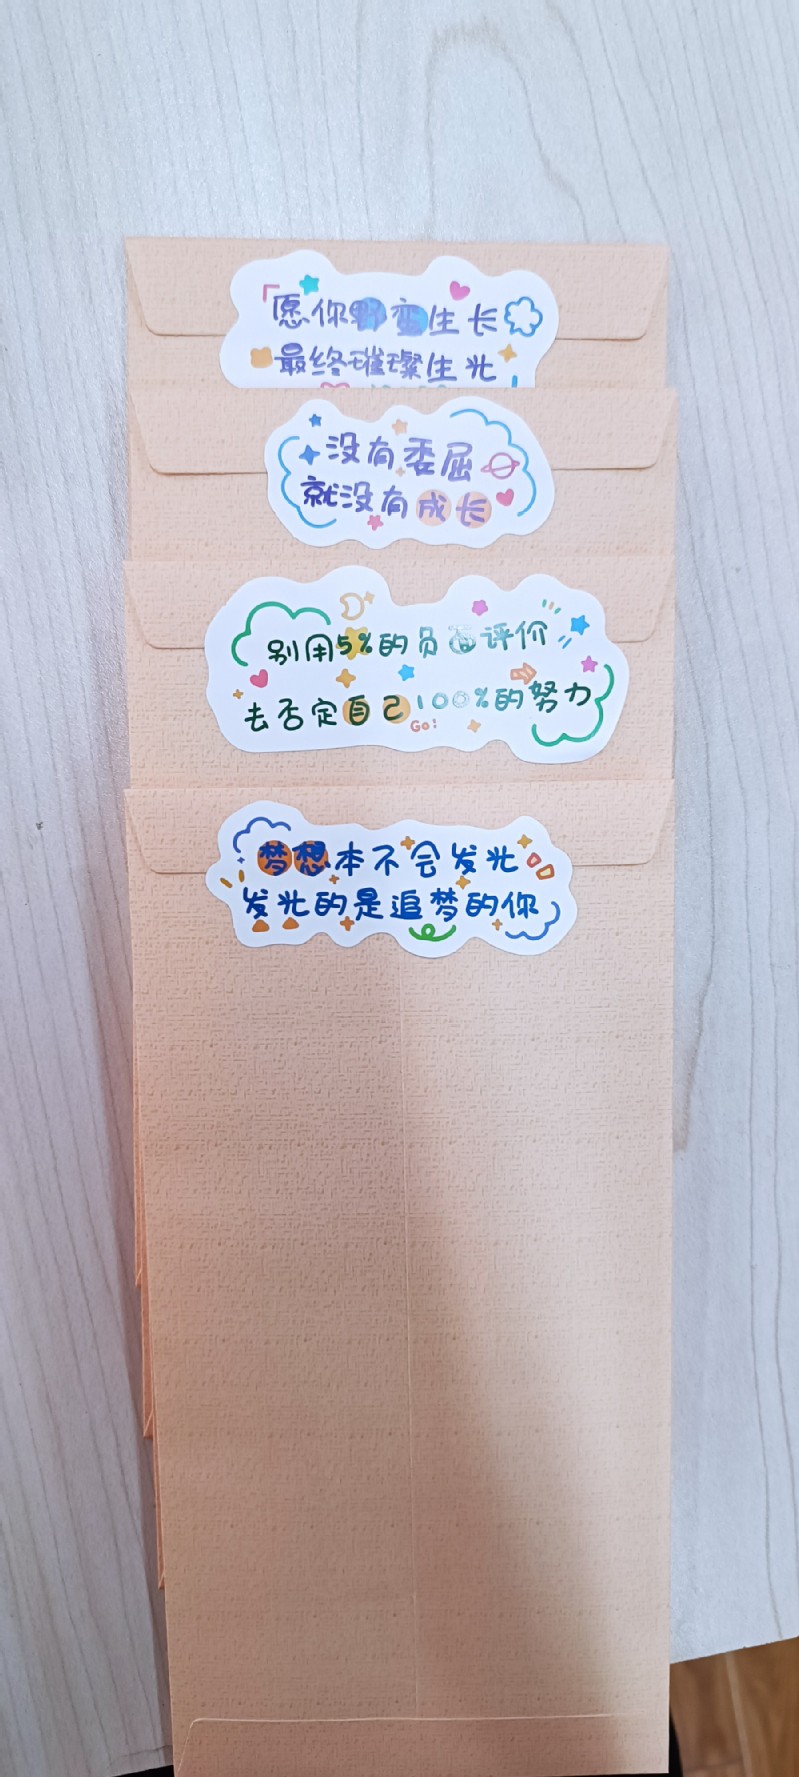 「愿你野蛮生长
最终璀璨生光
没有委屈
就没有成长
别用5%的负面评价
去否定自己100%的努力
Go!
梦想本不会发光
发光的是追梦的你